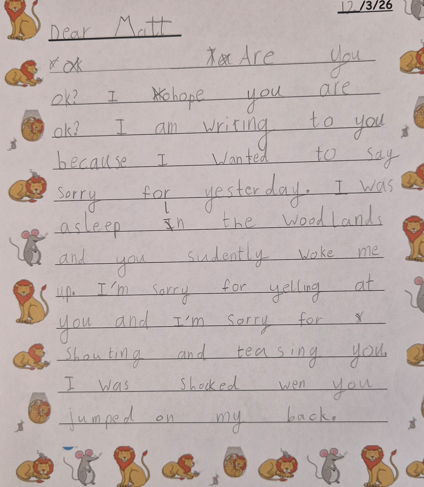 12/3/26
Dear Matt
Are you
ok? I hope you are
ok? I am writing to you
because I wanted to say
sorry for yesterday. I was
asleep in the woodlands
and you sudently woke me
up. I'm sorry for yelling at
you and I'm sorry for
shouting and teasing you.
I was shocked wen you
jumped on my back.